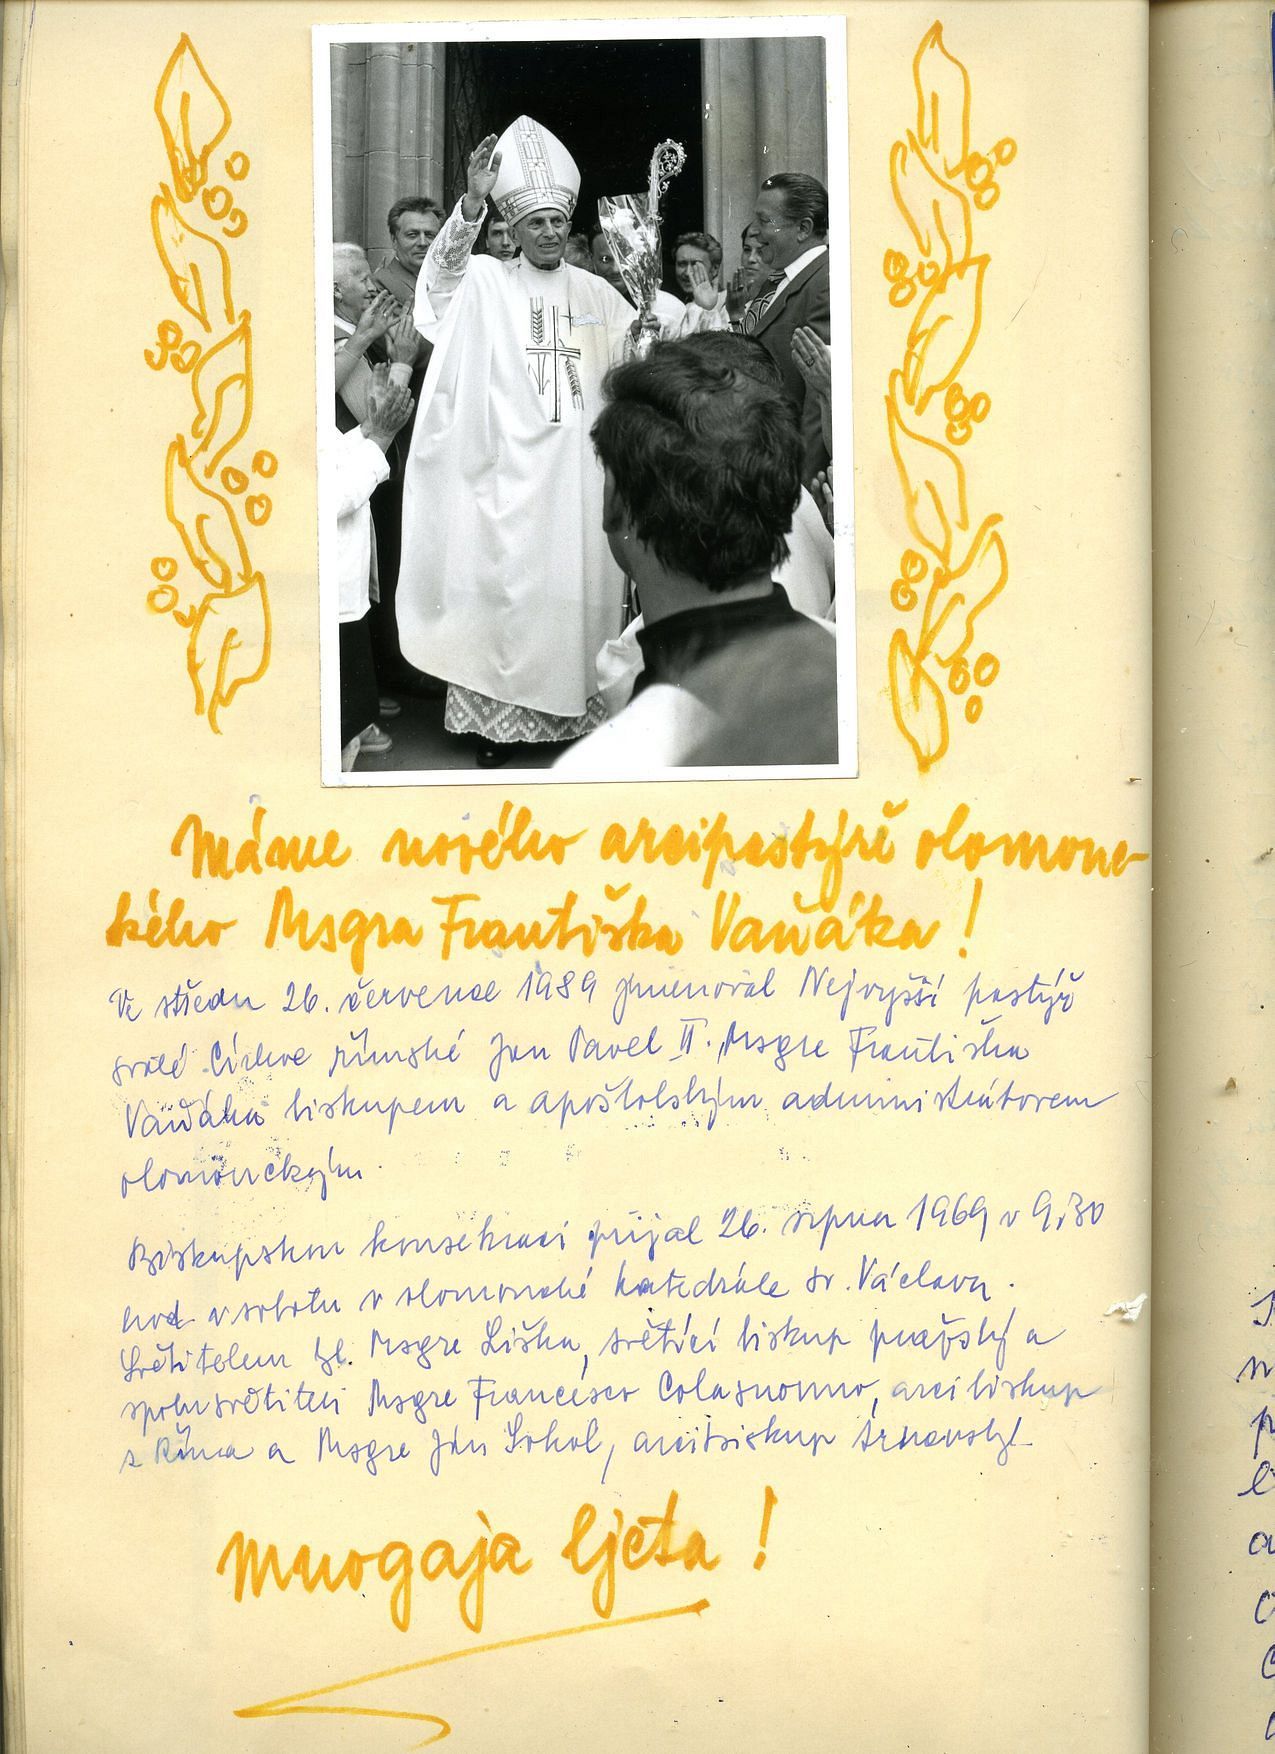 Máme nového arcipastýře olomouc-
kého Msgra Františka Vaňáka!
Ve středu 26. července 1989 jmenoval Nejvyšší pastýř
svaté Církve římské Jan Pavel II. Msgre Františka
Vaňáka biskupem a apoštolským administrátorem
olomouckým.
Biskupskou konsekraci přijal 26. srpna 1969 v 9,30
hod v sobotu v olomoucké katedrále sv. Václava.
Světitelem byl Msgre Liška, světící biskup pražský a
spolusvětiteli Msgre Francesco Colasuonno, arcibiskup
z Říma a Msgre Ján Sokol, arcibiskup trnavský.
Mnogaja ljeta!